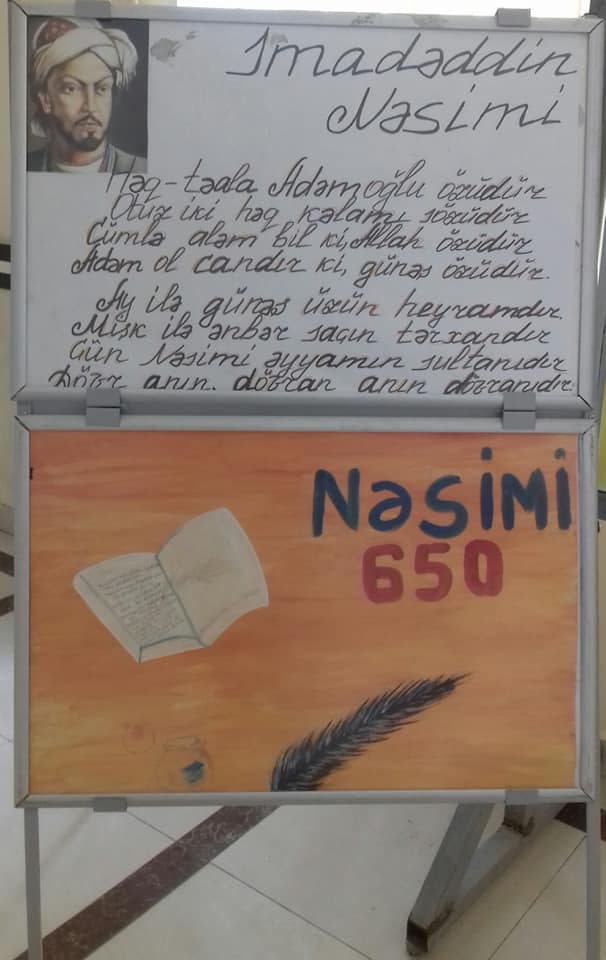 Imadəddin
Nəsimi
Həq-təala Adəmoğlu özüdür
Otuz iki həq kəlamı sözüdür
Cümlə aləm bil ki, Allah özüdür
Adəm ol candır ki, günəş özüdür.
Ay ilə günəş üzün heyramdır.
Misk ilə ənbər saçın tərxandır
Gün Nəsimi əyyamın sultanıdır
Dövr anın. dövran anın dövranıdır.
NəSİMİ
650